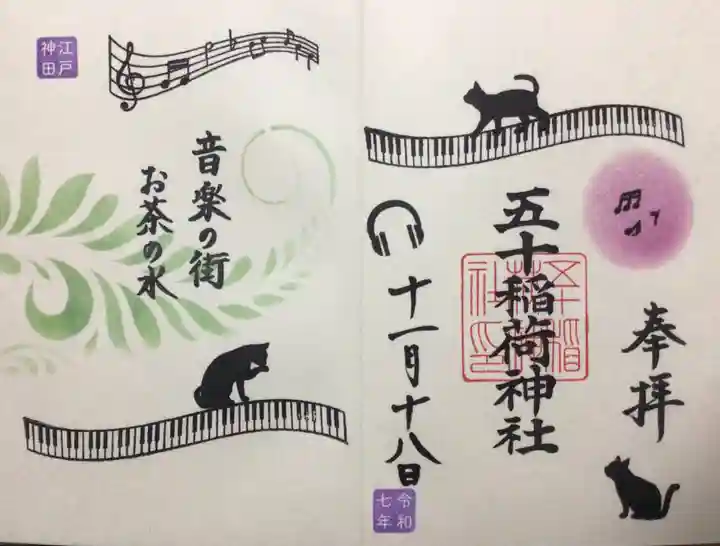 奉拝
五十稲荷神社
十一月十八日
令和
七年
江戸
神田
音楽の街
お茶の水